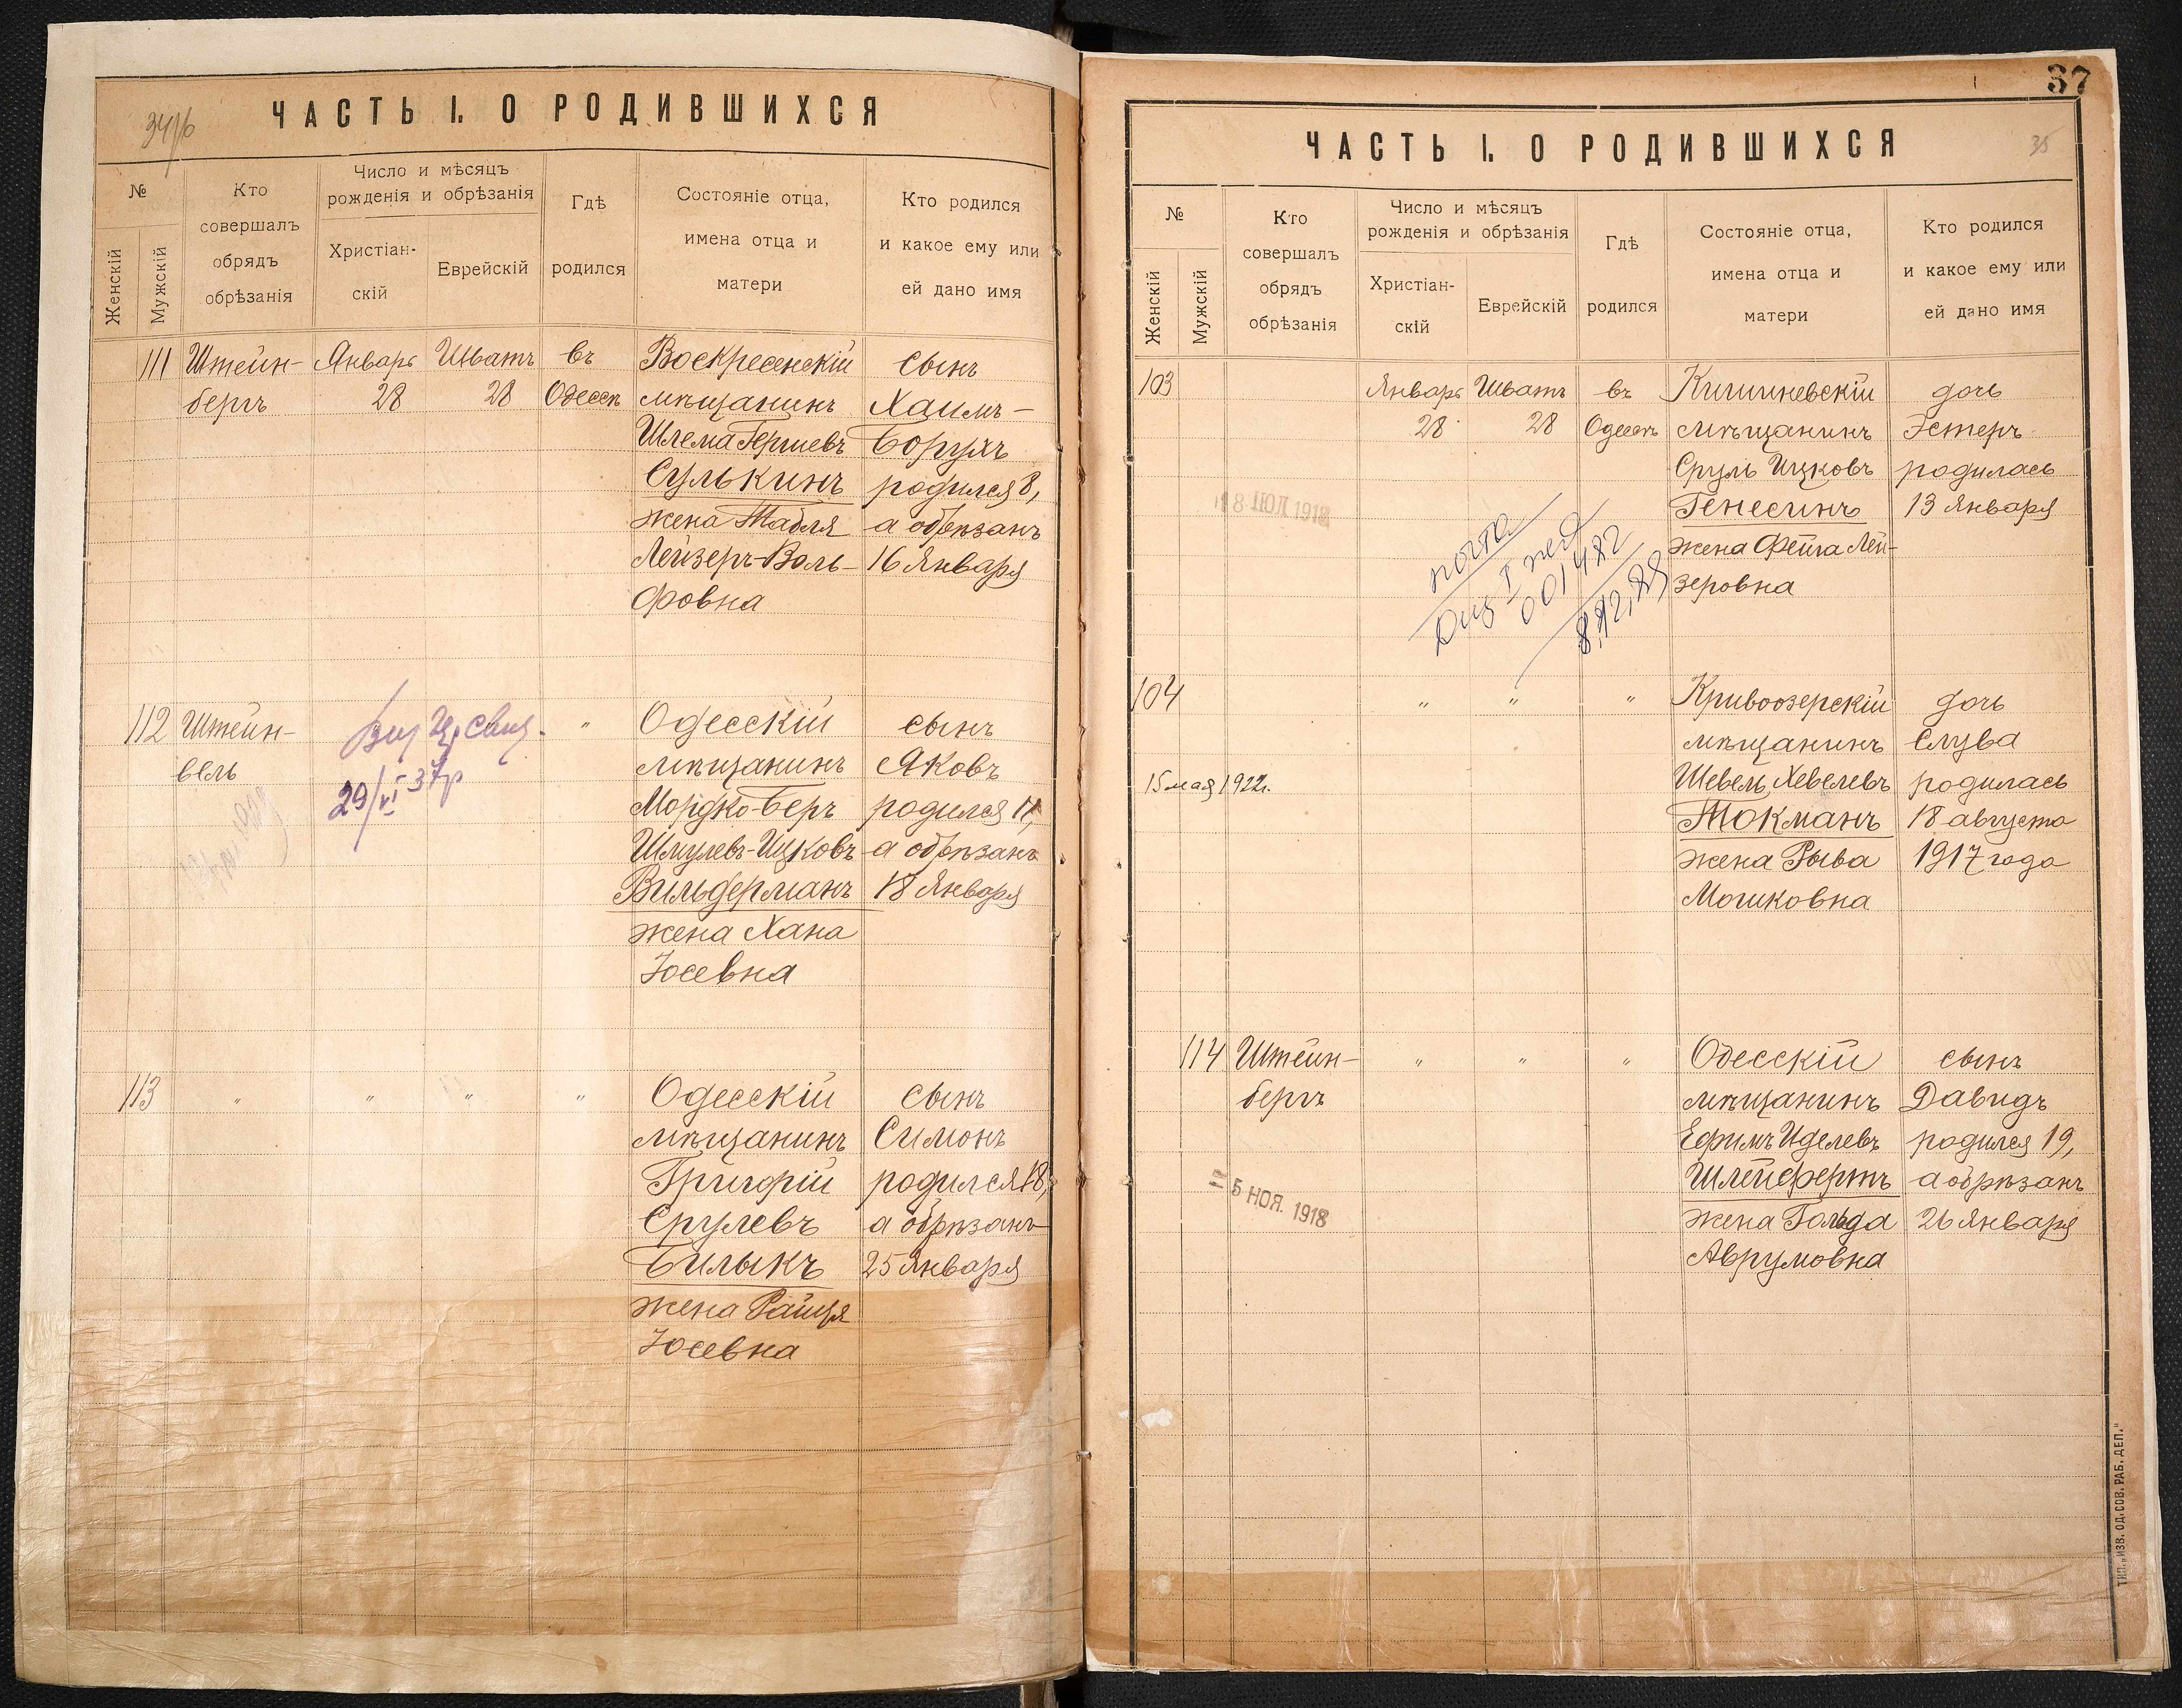 ЧАСТЬ I. О РОДИВШИХСЯ
№
Женскій
Мужскій
Кто
совершалъ
обрядъ
обрѣзанія
Число и мѣсяцъ
рожденія и обрѣзанія
Христіан-
скій
Еврейскій
Гдѣ
родился
Состояніе отца,
имена отца и
матери
Кто родился
и какое ему или
ей дано имя
111 Штейн- Январь Шватъ въ Воскресенскій сынъ
бергъ 28 28 Одессѣ мѣщанинъ Хаимъ-
Шлема Гершевъ Борухъ
Сулькинъ родился 8,
жена Табля а обрѣзанъ
Лейзеръ-Воль- 16 Января
фовна
112 Штейн- " Одесскій сынъ
вель мѣщанинъ Яковъ
29/VI-37р
Мордко-Беръ родился 11,
Шмулевъ-Ицковъ а обрѣзанъ
Вильдерманъ 18 Января
жена Хана
Іосевна
113 " " " " Одесскій сынъ
мѣщанинъ Симонъ
Григорій родился 18,
Срулевъ а обрѣзанъ
Билыкъ 25 Января
жена Раиця
Іосевна
37
35
ЧАСТЬ I. О РОДИВШИХСЯ
№
Женскій
Мужскій
Кто
совершалъ
обрядъ
обрѣзанія
Число и мѣсяцъ
рожденія и обрѣзанія
Христіан-
скій
Еврейскій
Гдѣ
родился
Состояніе отца,
имена отца и
матери
Кто родился
и какое ему или
ей дано имя
103 Январь Шватъ въ Кишиневскій дочь
28 28 Одессѣ мѣщанинъ Эстеръ
Сруль Ицковъ родилась
Генесинъ 13 Января
жена Фейга Лей-
зеровна
18 ИЮЛ 1918
почта
001482
104 " " " Кривоозерскій дочь
мѣщанинъ Слува
15 мая 1922г. Шевель Хевелевъ родилась
Токманъ 18 августа
жена Рыва 1917 года
Мошковна
114 Штейн- " " " Одесскій сынъ
бергъ мѣщанинъ Давидъ
Ефимъ Иделевъ родился 19,
Шлейфертъ а обрѣзанъ
жена Гольда 26 Января
Аврумовна
5 НОЯ. 1918
ТИП. „ИЗВ. ОД. СОВ. РАБ. ДЕП."